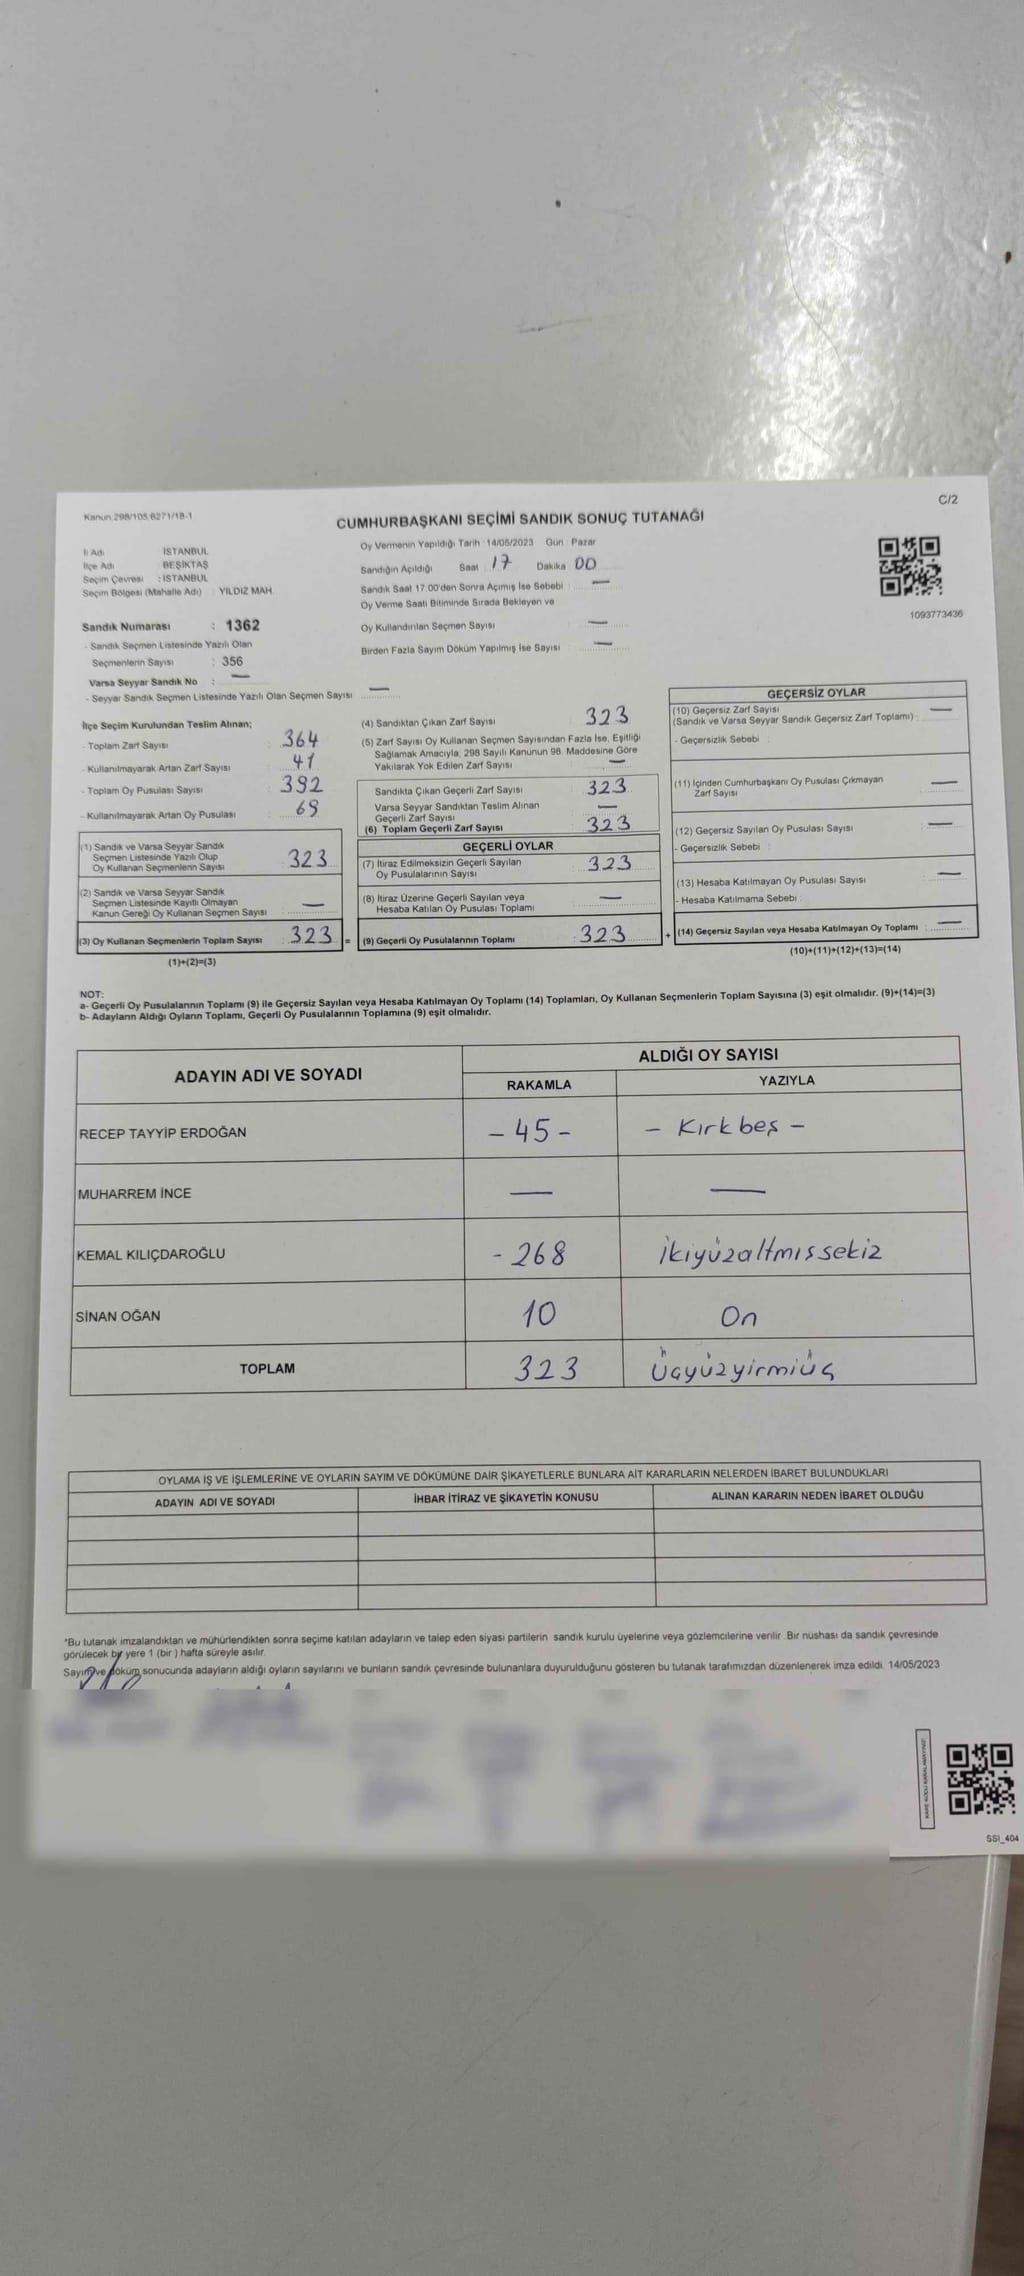 Kanun:298/105.6271/18-1
C/2
CUMHURBAŞKANI SEÇİMİ SANDIK SONUÇ TUTANAĞI
İl Adı : İSTANBUL
İlçe Adı : BEŞİKTAŞ
Seçim Çevresi : İSTANBUL
Seçim Bölgesi (Mahalle Adı) : YILDIZ MAH.
Sandık Numarası : 1362
- Sandık Seçmen Listesinde Yazılı Olan
Seçmenlerin Sayısı : 356
Varsa Seyyar Sandık No : —
- Seyyar Sandık Seçmen Listesinde Yazılı Olan Seçmen Sayısı —
Oy Vermenin Yapıldığı Tarih : 14/05/2023 Gün : Pazar
Sandığın Açıldığı Saat 17 Dakika 00
Sandık Saat 17:00'den Sonra Açımış İse Sebebi : —
Oy Verme Saati Bitiminde Sırada Bekleyen ve
Oy Kullandırılan Seçmen Sayısı —
Birden Fazla Sayım Döküm Yapılmış İse Sayısı : —
1093773436
İlçe Seçim Kurulundan Teslim Alınan;
- Toplam Zarf Sayısı : 364
- Kullanılmayarak Artan Zarf Sayısı : 41
- Toplam Oy Pusulası Sayısı : 392
- Kullanılmayarak Artan Oy Pusulası : 69
(1) Sandık ve Varsa Seyyar Sandık
Seçmen Listesinde Yazılı Olup
Oy Kullanan Seçmenlerin Sayısı : 323
(2) Sandık ve Varsa Seyyar Sandık
Seçmen Listesinde Kayıtlı Olmayan
Kanun Gereği Oy Kullanan Seçmen Sayısı —
(3) Oy Kullanan Seçmenlerin Toplam Sayısı : 323 =
(1)+(2)=(3)
(4) Sandıktan Çıkan Zarf Sayısı : 323
(5) Zarf Sayısı Oy Kullanan Seçmen Sayısından Fazla İse, Eşitliği
Sağlamak Amacıyla, 298 Sayılı Kanunun 98. Maddesine Göre
Yakılarak Yok Edilen Zarf Sayısı : —
Sandıkta Çıkan Geçerli Zarf Sayısı : 323
Varsa Seyyar Sandıktan Teslim Alınan
Geçerli Zarf Sayısı : —
(6) Toplam Geçerli Zarf Sayısı : 323
GEÇERLİ OYLAR
(7) İtiraz Edilmeksizin Geçerli Sayılan
Oy Pusulalarının Sayısı : 323
(8) İtiraz Üzerine Geçerli Sayılan veya
Hesaba Katılan Oy Pusulası Toplamı : —
(9) Geçerli Oy Pusulalarının Toplamı : 323 +
GEÇERSİZ OYLAR
(10) Geçersiz Zarf Sayısı
(Sandık ve Varsa Seyyar Sandık Geçersiz Zarf Toplamı) : —
- Geçersizlik Sebebi :
(11) İçinden Cumhurbaşkanı Oy Pusulası Çıkmayan
Zarf Sayısı —
(12) Geçersiz Sayılan Oy Pusulası Sayısı —
- Geçersizlik Sebebi :
(13) Hesaba Katılmayan Oy Pusulası Sayısı : —
- Hesaba Katılmama Sebebi :
(14) Geçersiz Sayılan veya Hesaba Katılmayan Oy Toplamı : —
(10)+(11)+(12)+(13)=(14)
NOT:
a- Geçerli Oy Pusulalarının Toplamı (9) ile Geçersiz Sayılan veya Hesaba Katılmayan Oy Toplamı (14) Toplamları, Oy Kullanan Seçmenlerin Toplam Sayısına (3) eşit olmalıdır. (9)+(14)=(3)
b- Adayların Aldığı Oyların Toplamı, Geçerli Oy Pusulalarının Toplamına (9) eşit olmalıdır.
ADAYIN ADI VE SOYADI
ALDIĞI OY SAYISI
RAKAMLA YAZIYLA
RECEP TAYYİP ERDOĞAN - 45 - - Kırkbeş -
MUHARREM İNCE — —
KEMAL KILIÇDAROĞLU - 268 ikiyüzaltmışsekiz
SİNAN OĞAN 10 On
TOPLAM 323 Üçyüzyirmiüç
OYLAMA İŞ VE İŞLEMLERİNE VE OYLARIN SAYIM VE DÖKÜMÜNE DAİR ŞİKAYETLERLE BUNLARA AİT KARARLARIN NELERDEN İBARET BULUNDUKLARI
ADAYIN ADI VE SOYADI İHBAR İTİRAZ VE ŞİKAYETİN KONUSU ALINAN KARARIN NEDEN İBARET OLDUĞU
*Bu tutanak imzalandıktan ve mühürlendikten sonra seçime katılan adayların ve talep eden siyasi partilerin sandık kurulu üyelerine veya gözlemcilerine verilir. Bir nüshası da sandık çevresinde
görülecek bir yere 1 (bir ) hafta süreyle asılır.
Sayım ve döküm sonucunda adayların aldığı oyların sayılarını ve bunların sandık çevresinde bulunanlara duyurulduğunu gösteren bu tutanak tarafımızdan düzenlenerek imza edildi. 14/05/2023
SSI_404